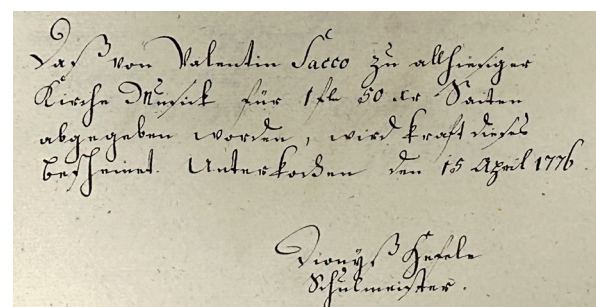 Daß von Valentin Sacco zu allhiesiger
Kirche Musick für 1 fl 50 xr Saiten
abgegeben worden, wird kraft dieses
bescheinet. Unterkochen den 15 April 1776.
Dionyß Hefele
Schulmeister.